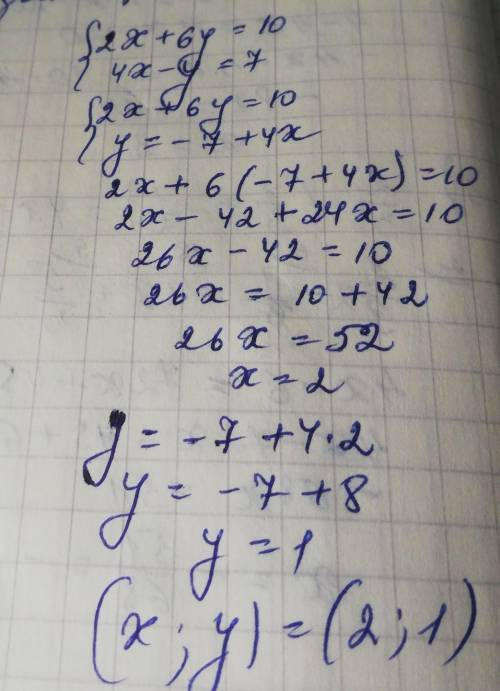 {2x+6y=10
4x-y=7
{2x+6y=10
y=-7+4x
2x+6(-7+4x)=10
2x-42+24x=10
26x-42=10
26x=10+42
26x=52
x=2
y=-7+4·2
y=-7+8
y=1
(x;y)=(2;1)